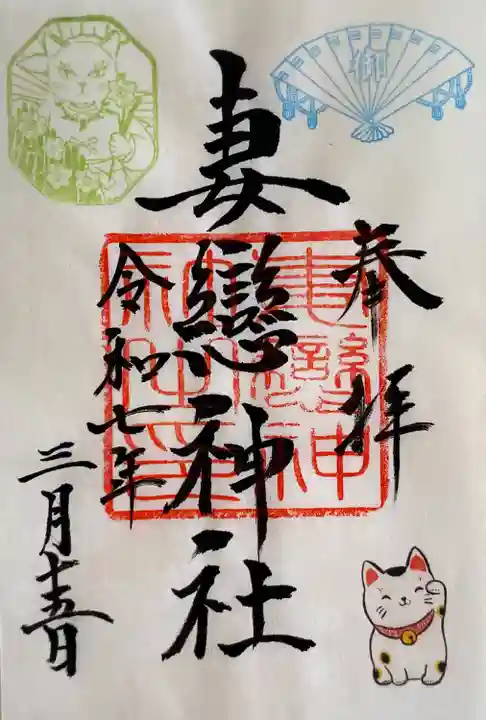 奉拝
妻戀神社
令和七年
三月十五日
御